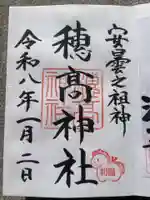 安曇之祖神
穂高神社
令和八年一月二日